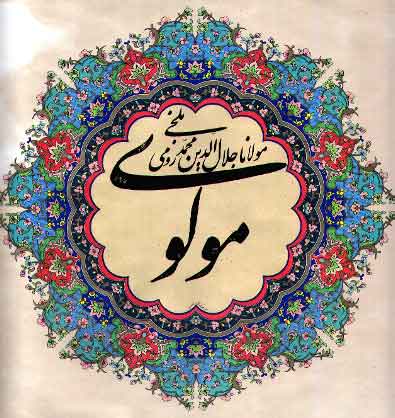 مولانا جلال الدین محمد رومی بلخی
مولوی